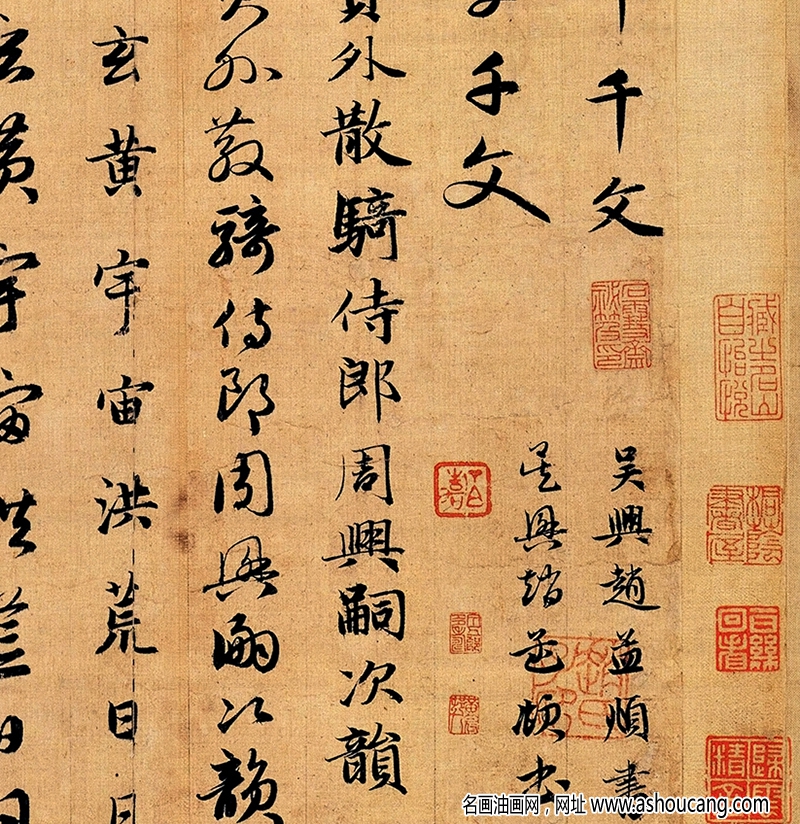 千文
吴興趙孟頫書
千文
吴興趙孟頫書
員外散騎侍郎周興嗣次韻
員外散騎侍郎周興嗣次韻
玄黄宇宙洪荒日月
玄黄宇宙洪荒日月
名画油画网，网址 www.ashoucang.com